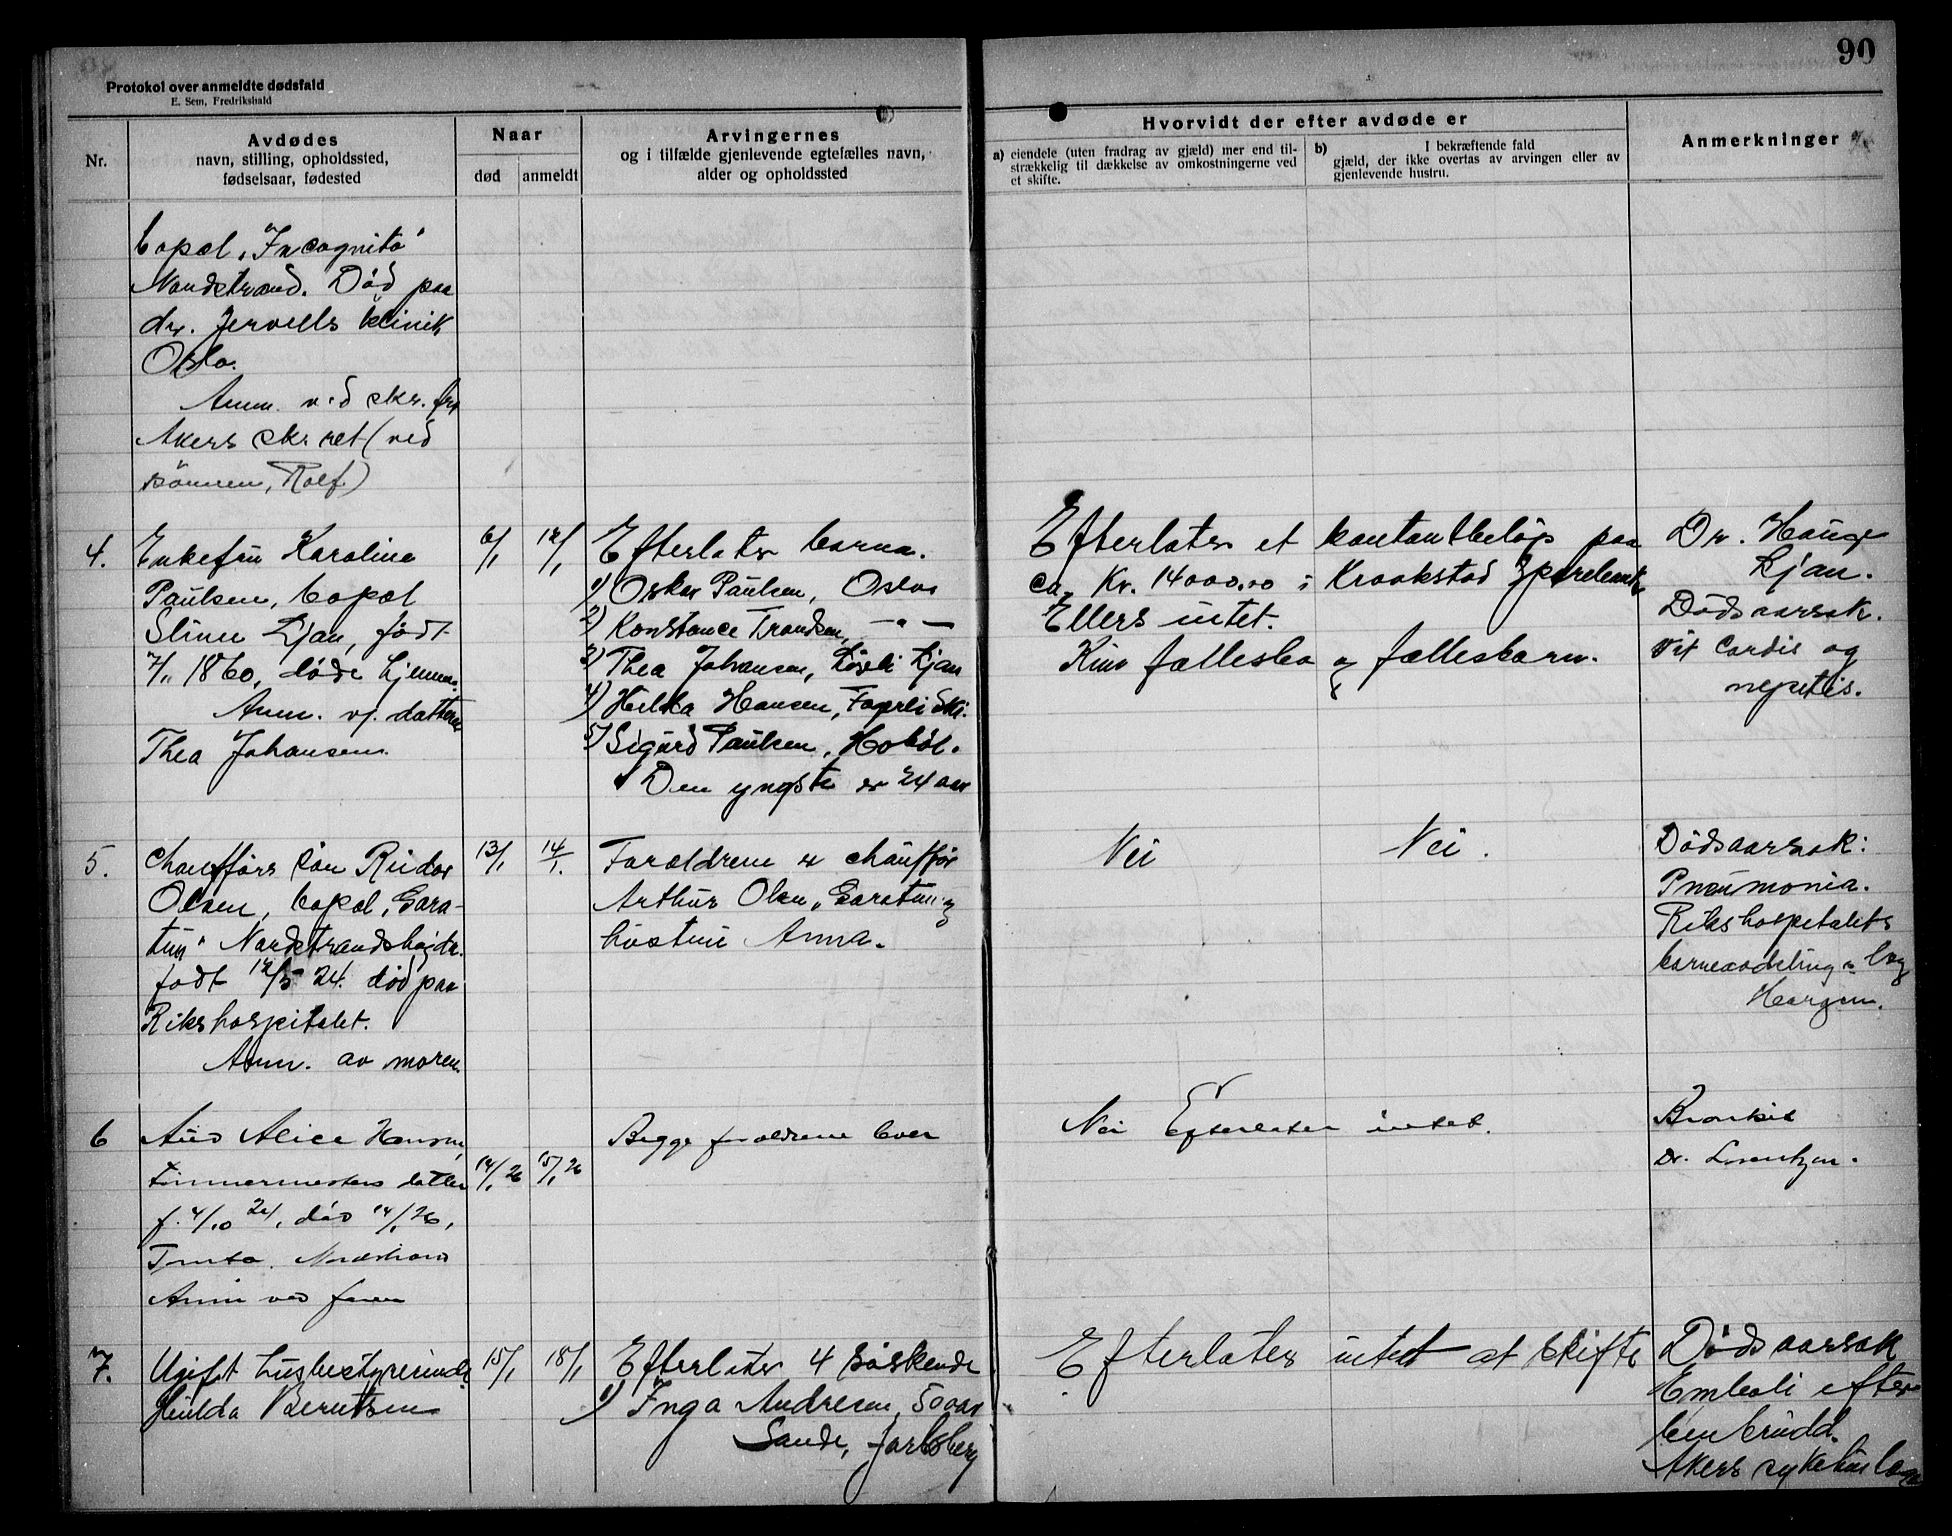 90
Protokol over anmeldte dødsfald
E. Sem, Fredrikshald
Nr.
Avdødes
navn, stilling, opholdssted,
fødselsaar, fødested
Naar
død
anmeldt
Arvingernes
og i tilfælde gjenlevende egtefælles navn,
alder og opholdssted
Hvorvidt der efter avdøde er
a) eiendele (uten fradrag av gjæld) mer end til-
strækkelig til dækkelse av omkostningerne ved
et skifte.
b) I bekræftende fald
gjæld, der ikke overtas av arvingen eller av
gjenlevende hustru.
Anmerkninger
bopæl "Incognito"
Nordstrand. Død paa
dr. Jervells klinik
Oslo.
Anm. ved skr. fra
Akers skr ret (ved
sønnen, Rolf)
4.
Enkefru Karoline
Paulsen, bopæl
Ljan, født
1860, døde hjemme.
Anm. v/ datteren
Thea Johansen.
6/1
12/1
Efterlater barna.
1) Oskar Paulsen, Oslo
2) Konstance Trandsen, — " —
3) Thea Johansen, Ljan
4) Hilda Hansen, Ski.
5) Sigurd Paulsen, Hobøl.
Den yngste er 24 aar
Efterlater et kontantbeløp paa
ca. Kr. 14000.00 i Kraakstad Sparebank
Ellers intet.
Kun fællesbo og fællesbarn.
Dr. Hauge
Ljan.
Dødsaarsak.
Vit Cordis og
5.
Chaufførs søn Reidar
Olsen, bopæl "Gara-
tun" Nordstrandshøgda.
født 12/5 24. død paa
Rikshospitalet.
Anm. av moren
13/1
14/1.
Forældrene er chauffør
Arthur Olsen, Garatun og
hustru Anna.
Nei
Nei.
Dødsaarsak:
Pneumonia.
Rikshospitalets
barneavdeling v læg
6
Aud Alice Hansen,
tømmermesters datter
f. 4/10 24, død 14/1 26,
Nordstrand
Anm ved faren
14/1 26
15/1 26
Begge forældrene lever
Nei Efterlater intet.
Bronkit
Dr. Lorentzen.
7.
Ugift husbestyrerinde
Hulda Berntsen
15/1
18/1
Efterlater 4 søskende
1) Inga Andresen, 50 aar
Sande, Jarlsberg
Efterlater intet at skifte
Dødsaarsak
Emboli efter
benbrudd.
Akers sykehus læge